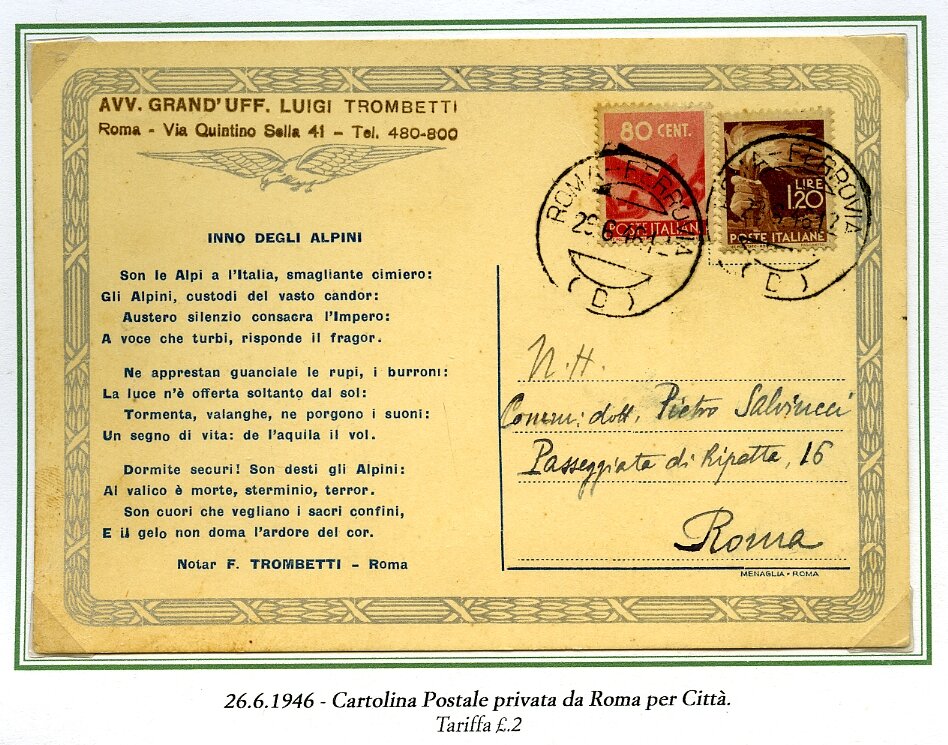 AVV. GRAND'UFF. LUIGI TROMBETTI
Roma - Via Quintino Sella 41 - Tel. 480-800
80 CENT.
POSTE ITALIAN
LIRE
1,20
POSTE ITALIANE
ROMA-FERROVIA
(D)
FERROVIA
(D)
INNO DEGLI ALPINI
Son le Alpi a l'Italia, smagliante cimiero:
Gli Alpini, custodi del vasto candor:
Austero silenzio consacra l'Impero:
A voce che turbi, risponde il fragor.
Ne apprestan guanciale le rupi, i burroni:
La luce n'è offerta soltanto dal sol:
Tormenta, valanghe, ne porgono i suoni:
Un segno di vita: de l'aquila il vol.
Dormite securi! Son desti gli Alpini:
Al valico è morte, sterminio, terror.
Son cuori che vegliano i sacri confini,
E il gelo non doma l'ardore del cor.
Notar F. TROMBETTI - Roma
N.H.
Comm: dott. Pietro Salvinucci
Passeggiata di Ripetta, 16
Roma
MENAGLIA - ROMA
26.6.1946 - Cartolina Postale privata da Roma per Città.
Tariffa £.2